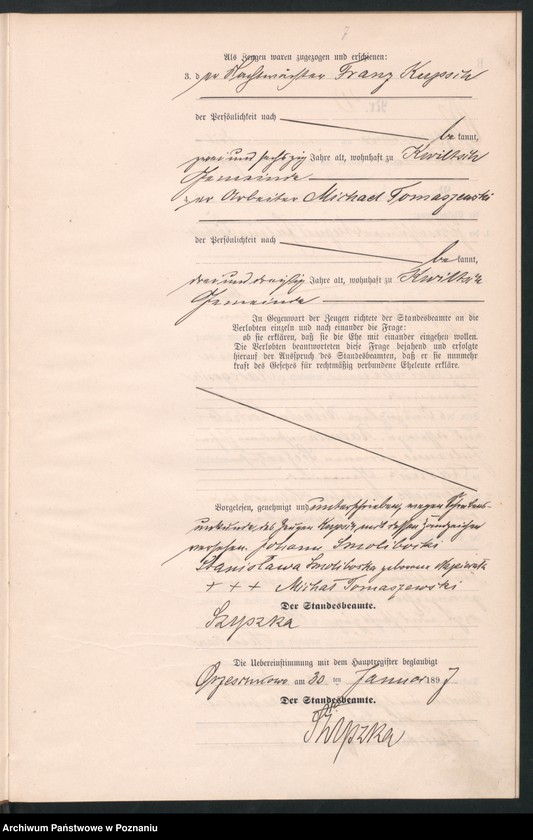 Als Zeugen waren zugezogen und erschienen:
3. der Nachtwächter Franz Kupsch
der Persönlichkeit nach
be kannt,
zwei und sechszig Jahre alt, wohnhaft zu Kwiltsch
Gemeinde
4. der Arbeiter Michael Tomaszewski
der Persönlichkeit nach
be kannt,
drei und dreißig Jahre alt, wohnhaft zu Kwiltsch
Gemeinde
In Gegenwart der Zeugen richtete der Standesbeamte an die
Verlobten einzeln und nach einander die Frage:
ob sie erklären, daß sie die Ehe mit einander eingehen wollen.
Die Verlobten beantworteten diese Frage bejahend und erfolgte
hierauf der Ausspruch des Standesbeamten, daß er sie nunmehr
kraft des Gesetzes für rechtmäßig verbundene Eheleute erkläre.
Vorgelesen, genehmigt und unterschrieben, wegen Schreibens-
unkunde des Zeugen Kupsch mit dessen Handzeichen
versehen. Johann Smolibocki
Stanisława Smolibocka geborene
+ + + Michał Tomaszewski
Der Standesbeamte.
Szyszka
Die Uebereinstimmung mit dem Hauptregister beglaubigt
am 30 ten Januar 1897
Der Standesbeamte.
Szyszka
Archiwum Państwowe w Poznaniu